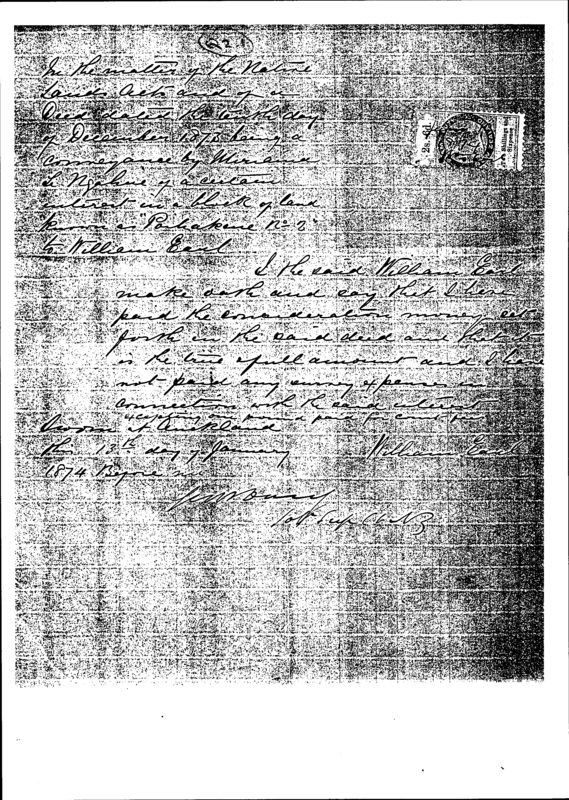 In the matter of the Native
Lands Acts and of a
Deed dated the tenth day
of December 1873 being a
conveyance by Miriama
of a certain
interest in a block of land
known as No 2
to William Earl
I the said William Earl
make oath and say that I have
paid the consideration money set
forth in the said deed and that it
is the true & full amount and I have
not paid any survey expenses in
connection with the said interest
Sworn at Auckland
this 13th day of January William Earl
1874 Before me
2s. 6d.